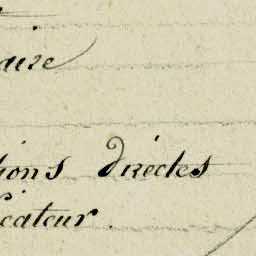 aire
tions Directes
icateur.